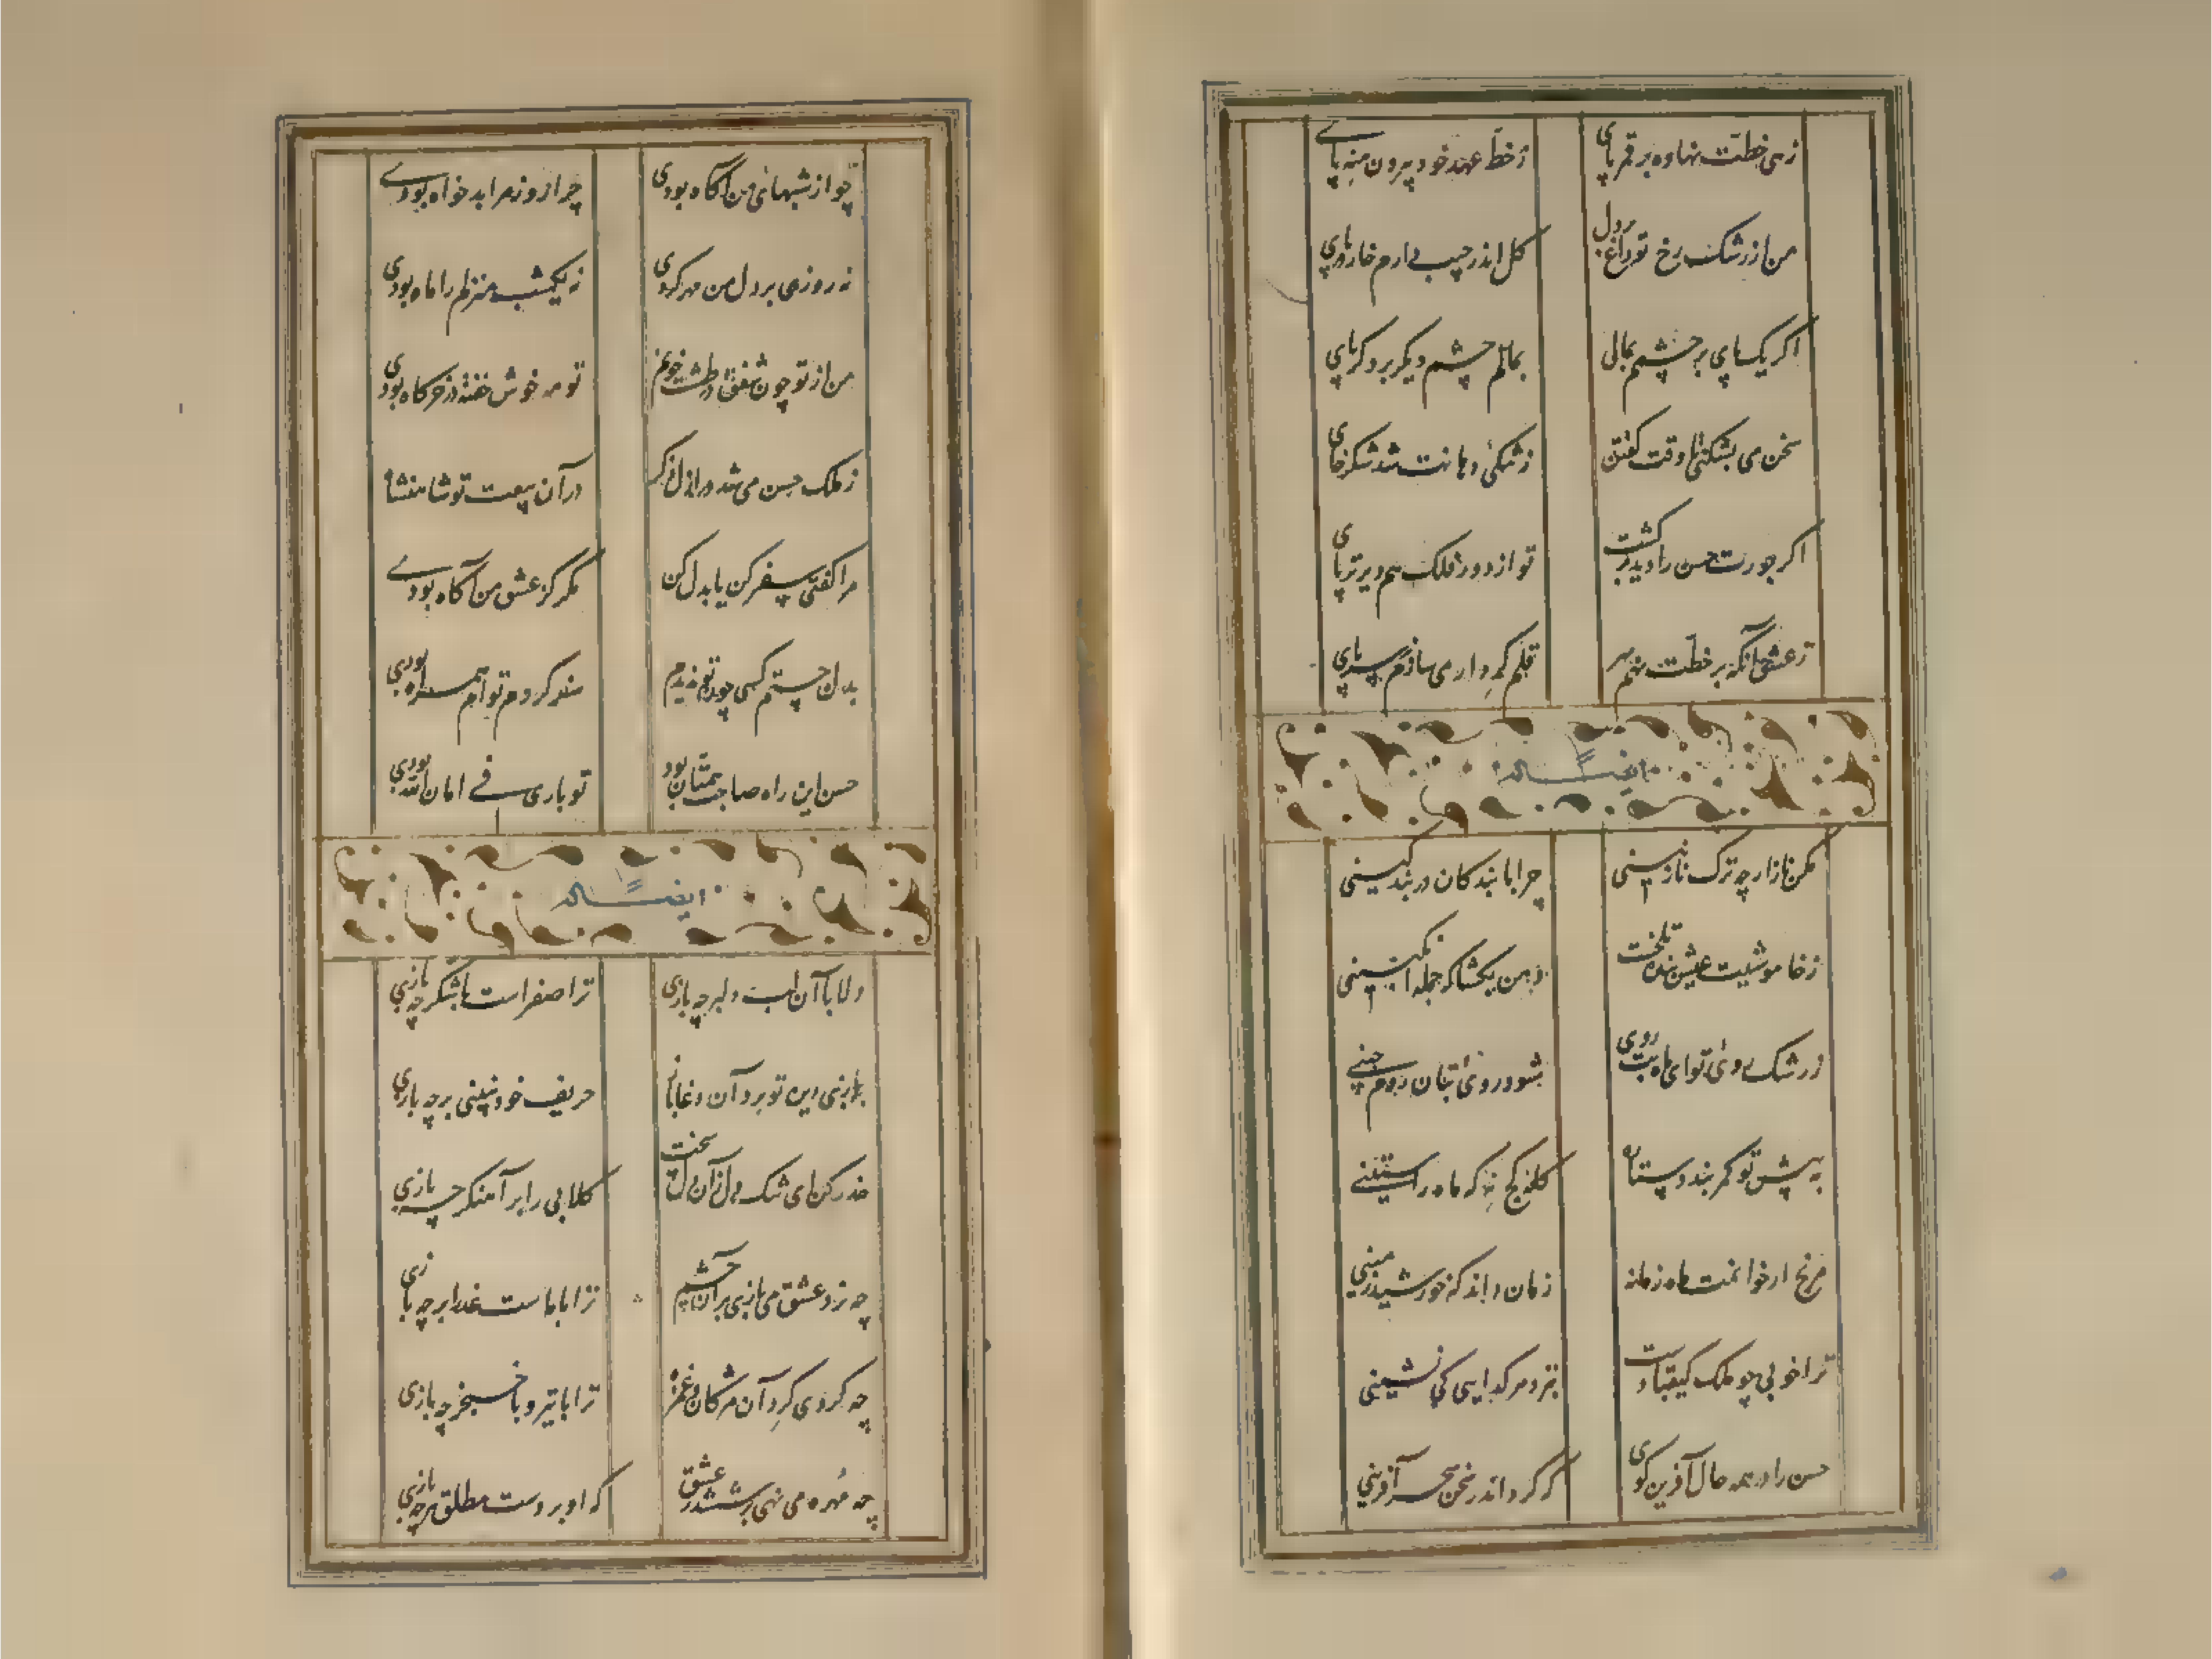 زهی خطت نهاده بر قمر پای
ز خط عهد خود بیرون منه پای
من از رشک رخ تو داغ بر دل
کل اندر جیب دارم خار در پای
اکر یکبار پای بر چشمم بمالی
بمالم چشم دیگر بر دگر پای
سخن می بشکنی تا وقت کفتن
ز تنگی دهانت شد شکرخای
اکر جورت حسن را دیر برکشت
تو از دور فلک هم دیرتر پای
ز عشق آنکه بر خطت نهم سر
قلم کردار می سازم ز سر پای
ایضاً له
مکن ناز ار چه ترک نازنینی
چرا با بندکان در بند کینی
ز خاموشیت عیش بنده تلخست
دهن بکشا که جمله انکبینی
ز رشک روی تو ای ماه بت روی
شود در روی بتان روم چینی
به پیش تو کمر بندد ستاره
کله کج نه که ماه راستینی
مرنج ار خوانمت ماه زمانه
زمان داند که خورشید زمینی
ترا خوبی چو ملک کیقبادست
بنزد هر کدایی کی نشینی
حسن را در همه حال آفرین کوی
که کرد اندر سخن سحر آفرینی
چو از شبهای من آکاه بودی
چرا روز مرا بدخواه بودی
نه روزی بر دل من مهر کردی
نه یکشب منزلم را ماه بودی
من از تو چون شفق در طشت خونم
تو مه خوش خفته در خرکاه بودی
ز ملک حسن می شد در ازل ذکر
در آن بیعت تو شاهنشاه
مرا کفتی سفر کن یا بدل کن
مکر کز عشق من آکاه بودی
بدل جستم کسی چون تو ندیدم
سفر کردم تو ام همراه بودی
حسن این راه صاحب همتان بود
تو باری فی امان الله بودی
ایضاً له
دلا با آن لب دلبر چه بازی
ترا صفراست با شکر چه بازی
ببازی دین تو برد آن دغاباز
حریف خود نبینی بر چه بازی
حذر کن ای تنک دل زان دل سخت
کلابی را بر آهنکر چه بازی
چه نرد عشق می بازی بر آن چشم
ترا با ماست غدابر چه بازی
چه کردی کرد آن مژکان و غمزه
ترا با تیر و با خنجر چه بازی
چه مهره می نهی در ششدر عشق
که او بر دست مطلق هر چه بازی